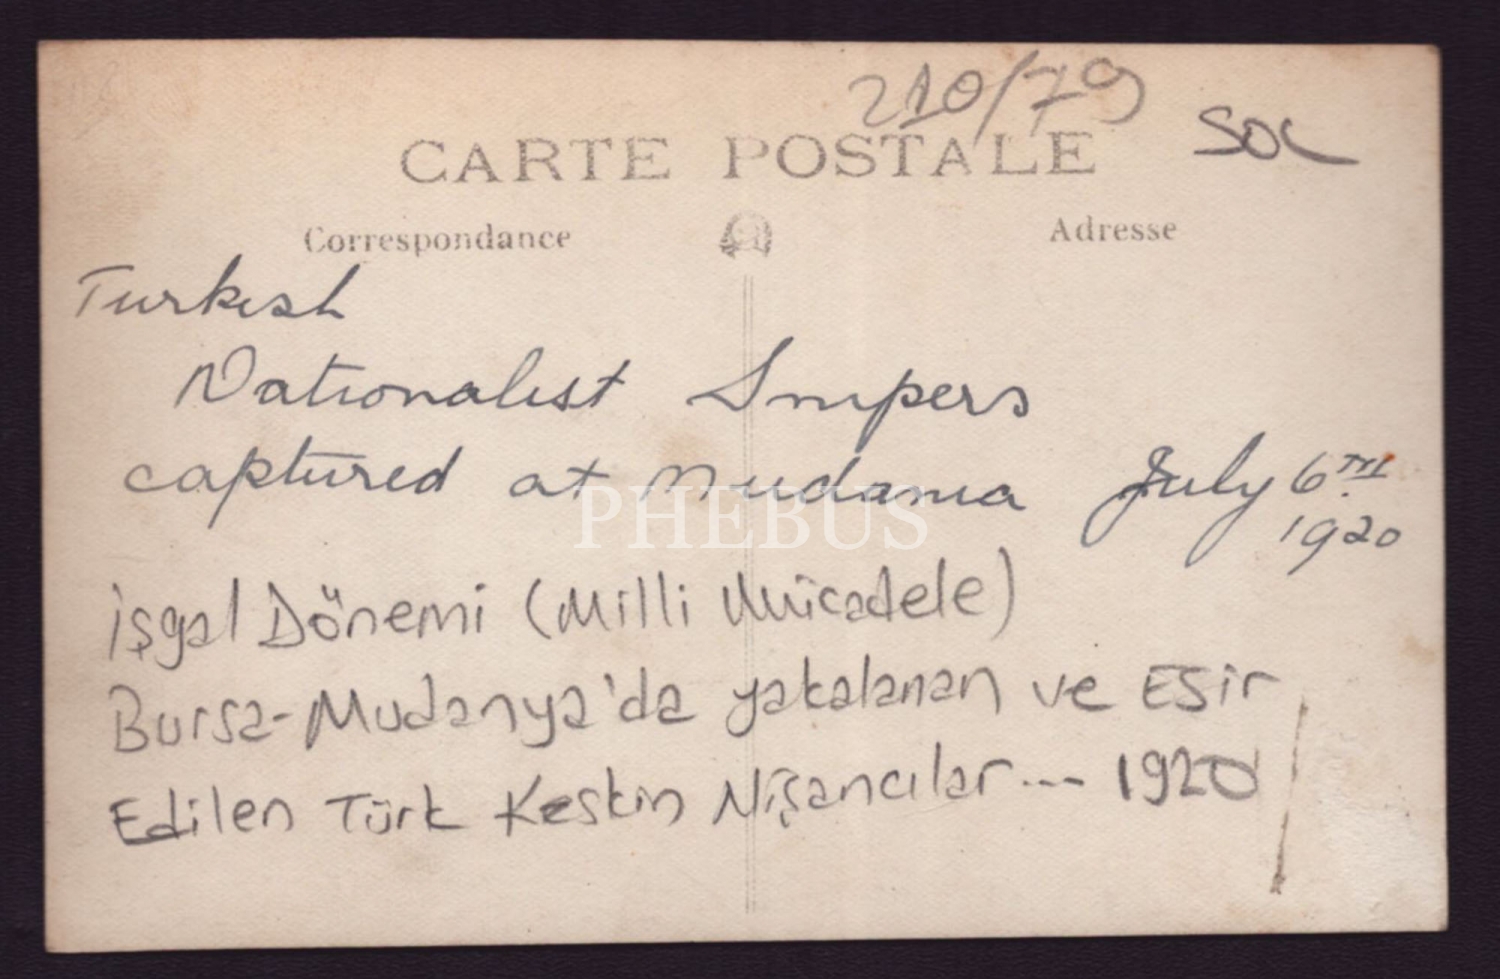 210/79
SOL
CARTE POSTALE
Correspondance
Adresse
Turkish
Nationalist Snipers
captured at Mudania July 6TH
1920
PHEBUS
İşgal Dönemi (Milli Mücadele)
Bursa-Mudanya'da yakalanan ve Esir
Edilen Türk Keskin Nişancılar... 1920